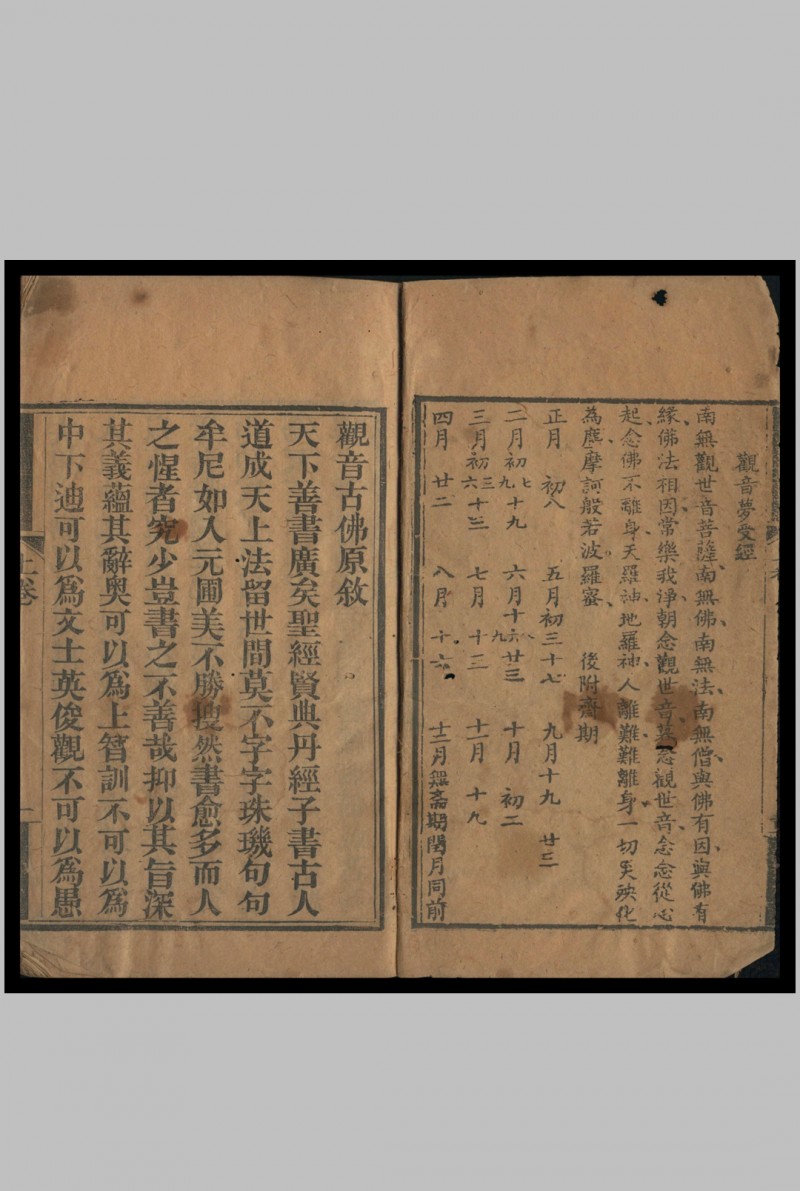 觀音夢受經
南無觀世音菩薩南無佛南無法南無僧與佛有因與佛有
緣佛法相因常樂我淨朝念觀世音暮念觀世音念念從心
起念佛不離身天羅神地羅神人離難難離身一切災殃化
為塵摩訶般若波羅蜜 後附齋期
正月 初八 五月初三十七 九月十九 廿三
二月初七九十九 六月十六八九廿三 十月 初二
三月初三六十三 七月 十三 十一月 十九
四月 廿二 八月 十六 十二月無斋期閏月同前
觀音古佛原敘
天下善書廣矣聖經賢典丹經子書古人
道成天上法留世間莫不字字珠璣句句
牟尼如入元圃美不勝搜然書愈多而人
之惺者究少豈書之不善哉抑以其旨深
其義蘊其辭奥可以爲上智訓不可以爲
中下迪可以爲文士英俊觀不可以爲愚
上卷
一